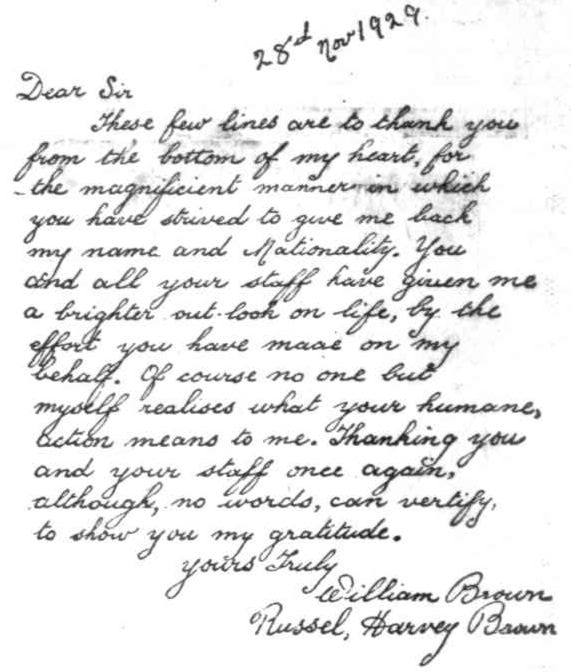 28th Nov 1929.
Dear Sir
These few lines are to thank you
from the bottom of my heart, for
the magnificient manner in which
you have strived to give me back
my name and Nationality. You
and all your staff have given me
a brighter out-look on life, by the
effort you have made on my
behalf. Of course no one but
myself realises what your humane,
action means to me. Thanking you
and your staff once again,
although, no words, can vertify,
to show you my gratitude.
yours Truly
William Brown
Russel, Harvey Brown